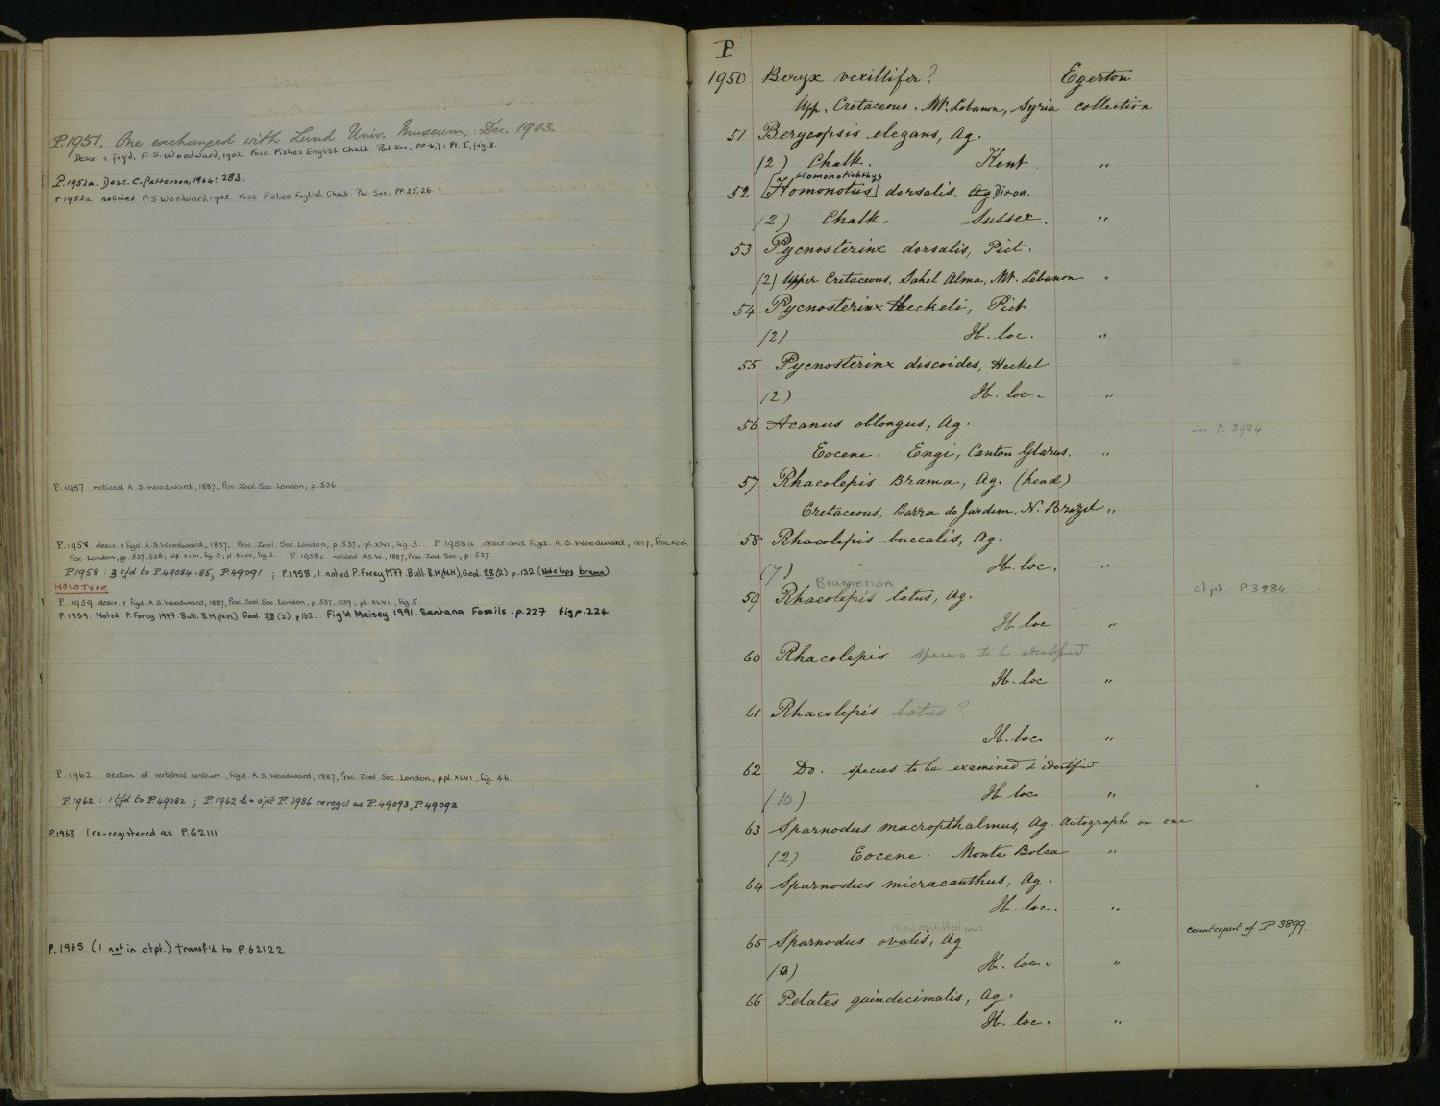 P.1951. One exchanged with Lund Univ. Museum, Dec. 1903.
Descr. & figd. A.S. Woodward, 1902. Foss. Fishes English Chalk. Pal. Soc., pp. 6,7; Pl. I, fig. 3.
P.1952a. Desc. C. Patterson, 1964: 283.
P.1952a noticed A S Woodward, 1902. Foss Fishes English Chalk. Pal Soc. PP. 25,26
P.1957 noticed A.S. Woodward, 1887, Proc. Zool. Soc. London, p. 536.
P.1958 descr. & figd. A.S. Woodward, 1887, Proc. Zool. Soc. London, p. 537, pl. XLVI, fig. 3. P.1958a descr. and figd. A.S. Woodward, 1887, Proc. Zool.
Soc. London, pp. 537, 538, pl. XLVI, fig. 5, pl. XLVII, fig. 2. P.1958c noticed A.S.W., 1887, Proc. Zool. Soc., p. 537.
P.1958: 3 tfd to P.49084-85, P.49091; P.1958, 1 noted P. Forey 1977. Bull. B.M.(N.H.), Geol. 28 (2) p. 132 (Notelops brama)
HOLOTYPE
P. 1959 descr. & figd. A.S. Woodward, 1887, Proc. Zool. Soc. London, p. 537, 539, pl. XLVI, fig. 5
P.1959. Noted P. Forey 1977. Bull. B.M.(N.H.) Geol. 28 (2) p162. Fig'd Maisey 1991. Santana Fossils. p.227 fig p.224
P. 1962 section of vertebral centrum, figd. A.S. Woodward, 1887, Proc. Zool. Soc. London, pl. XLVI, fig. 4b.
P.1962: 1 tfd to P.49082; P.1962 & ctpt P.3986 re-regd as P.49093, P.49092
P.1963 1 re-registered as P.62111
P.1965 (1 not in ctpt.) transf'd to P.62122
P.
1950 Beryx vexillifer? Egerton
Upp. Cretaceous. Mt. Lebanon, Syria collection
51 Berycopsis elegans, Ag.
(2) Chalk. Kent "
Homonotichthys
52 [Homonotus] dorsalis. Ag Dixon.
(2) Chalk. Sussex. "
53 Pycnosterinx dorsalis, Pict.
(2) Upper Cretaceous. Sahel Alma, Mt. Lebanon "
54 Pycnosterinx Heckeli, Pict
(2) H. loc. "
55 Pycnosterinx discoides, Heckel
(2) H. loc. "
56 Acanus oblongus, Ag.
in P. 3924
Eocene. Engi, Canton Glarus. "
57 Rhacolepis Brama, Ag. (head)
Cretaceous. Barra do Jardim. N. Brazil "
58 Rhacolepis buccalis, Ag.
(7) H. loc. "
Brannerion
59 Rhacolepis latus, Ag. ctpt. P3984
H. loc "
60 Rhacolepis species to be identified
H. loc "
61 Rhacolepis latus?
H. loc. "
62 Do. species to be examined & identified
(10) H. loc "
63 Sparnodus macropthalmus, Ag. Autograph on one
(2) Eocene. Monte Bolca "
64 Sparnodus micracanthus, Ag.
H. loc. "
counterpart of P 3899.
65 Sparnodus ovalis, Ag
(3) H. loc. "
66 Pelates quindecimalis, Ag.
H. loc. "